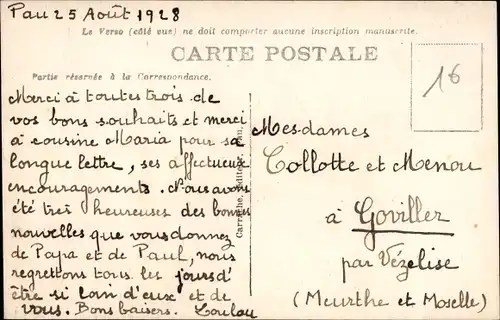 Pau 25 Août 1928
Le Verso (côté vue) ne doit comporter aucune inscription manuscrite.
CARTE POSTALE
Partie réservée à la Correspondance.
16
Merci à toutes trois de
vos bons souhaits et merci
à cousine Maria pour sa
longue lettre, ses affectueux
encouragements. Nous avons
été très heureuses des bonnes
nouvelles que vous donnez
de Papa et de Paul, nous
regrettons tous les jours d'
être si loin d'eux et de
vous. Bons baisers. Loulou
Carrache, Editeur, Pau.
Mesdames
Collotte et Menou
à Goviller
par Vézelise
(Meurthe et Moselle)